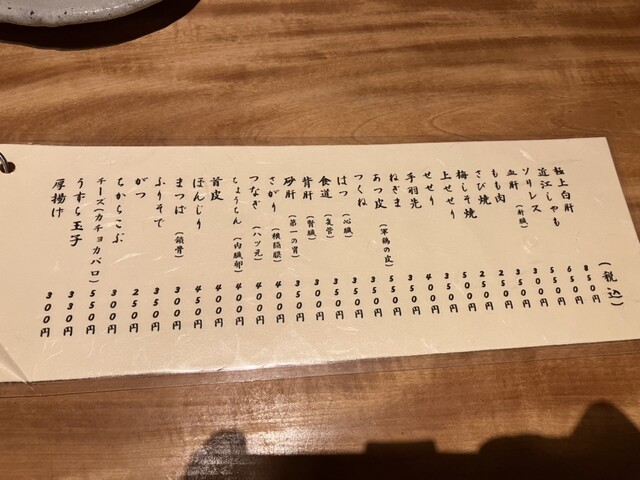 (税込)
極上白肝 850円
近江しゃも 650円
ソリレス 550円
血肝(肝臓) 300円
もも肉 350円
さび焼 250円
梅しそ焼 250円
上せせり 500円
せせり 350円
手羽先 400円
ねぎま 300円
あつ皮(軍鶏の皮) 350円
つくね 350円
はつ(心臓) 350円
食道(食管) 350円
背肝(腎臓) 300円
砂肝(第一の胃) 350円
さがり(横隔膜) 400円
つなぎ(ハツ元) 400円
ちょうちん(内臓卵) 400円
首皮 400円
ぼんじり 450円
まつば(鎖骨) 300円
ふりそで 350円
がつ 250円
ちからこぶ 300円
チーズ(カチョカバロ) 550円
うずら玉子 330円
厚揚げ 300円